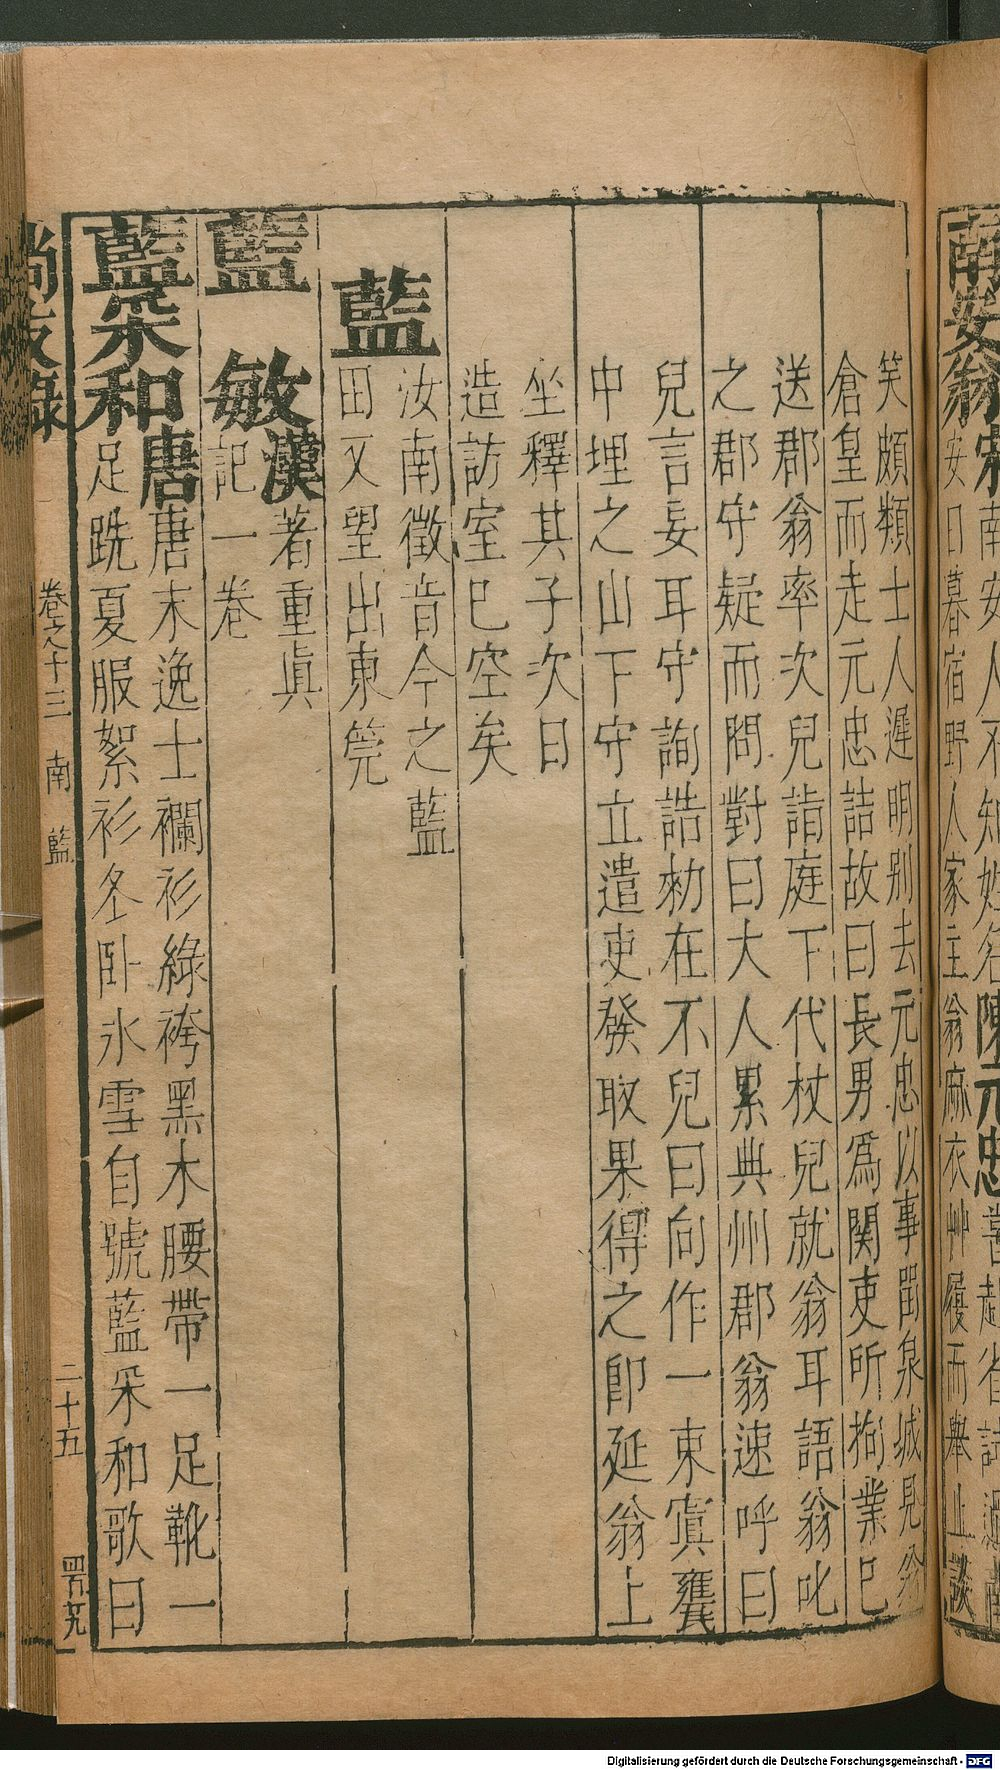 南安翁
宋
南安人不知姓名
陳元忠
善赴省試過南
安日暮宿野人家主翁麻衣艸履而舉止談
笑頗類士人遲明別去元忠以事留泉城見翁
倉皇而走元忠詰故曰長男爲關吏所拘業已
送郡翁率次兒詣庭下代杖兒就翁耳語翁叱
之郡守疑而問對曰大人累典州郡翁速呼曰
兒言妄耳守詢誥勅在不兒曰向作一束寘甕
中埋之山下守立遣吏發取果得之卽延翁上
坐釋其子次日
造訪室已空矣
藍
汝南徵音今之藍
田又望出東筦
藍敏
漢
著重眞
記一卷
藍采和
唐
唐末逸士襴衫綠袴黑木腰帶一足靴一
足跣夏服絮衫冬卧氷雪自號藍采和歌曰
尚友錄
卷之十三
南
藍
二十五
Digitalisierung gefördert durch die Deutsche Forschungsgemeinschaft - DFG